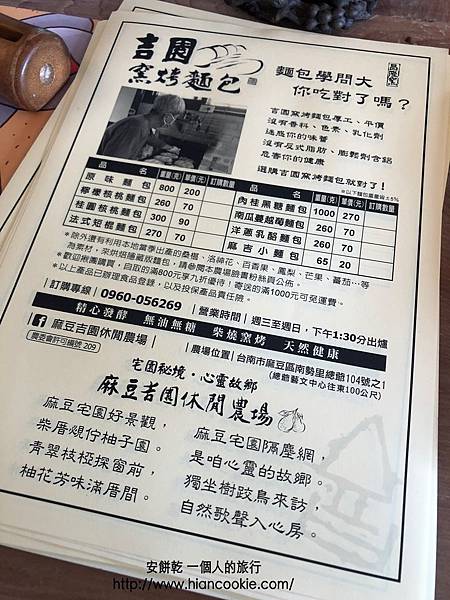 吉園
窯烤麵包
麵包學問大
你吃對了嗎？
吉園窯烤麵包厚工、平價
沒有香料、色素、乳化劑
迷惑你的味蕾
沒有反式脂肪、膨鬆劑含鋁
危害你的健康
選購吉園窯烤麵包就對了！
※以下麵包重量皆±5%
品名 重量(克) 價格(元) 訂購數量
原味麵包 800 200
檸檬核桃麵包 260 70
桂圓核桃麵包 300 90
法式短棍麵包 270 70
品名 重量(克) 價格(元) 訂購數量
肉桂黑糖麵包 1000 270
南瓜蔓越莓麵包 260 70
洋蔥乳酪麵包 260 70
麻吉小麵包 65 20
*除外還有利用本地當季出產的桑椹、洛神花、百香果、鳳梨、芒果、蕃茄…等
為素材，來烘焙隱藏版麵包，請參閱本農場臉書粉絲頁公佈。
*歡迎揪團購買，自取的滿800元享九折優待！寄送的滿1000元可免運費。
*以上產品已辦理食品登錄，以及投保產品責任險。
訂購專線 0960-056269 營業時間 週三至週日，下午1:30分出爐
精心發酵 無油無糖 柴燒窯烤 天然健康
麻豆吉園休閒農場
農委會許可編號 209
農場位置 台南市麻豆區南勢里總爺104號之1
(總爺藝文中心往東100公尺)
宅園秘境・心靈故鄉
麻豆吉園休閒農場
麻豆宅園好景觀，
柴厝覕佇柚子園。
青翠枝椏探窗前，
柚花芳味滿厝間。
麻豆宅園隔塵網，
是咱心靈的故鄉。
獨坐樹跤鳥來訪，
自然歌聲入心房。
安餅乾 一個人的旅行
http://www.hiancookie.com/